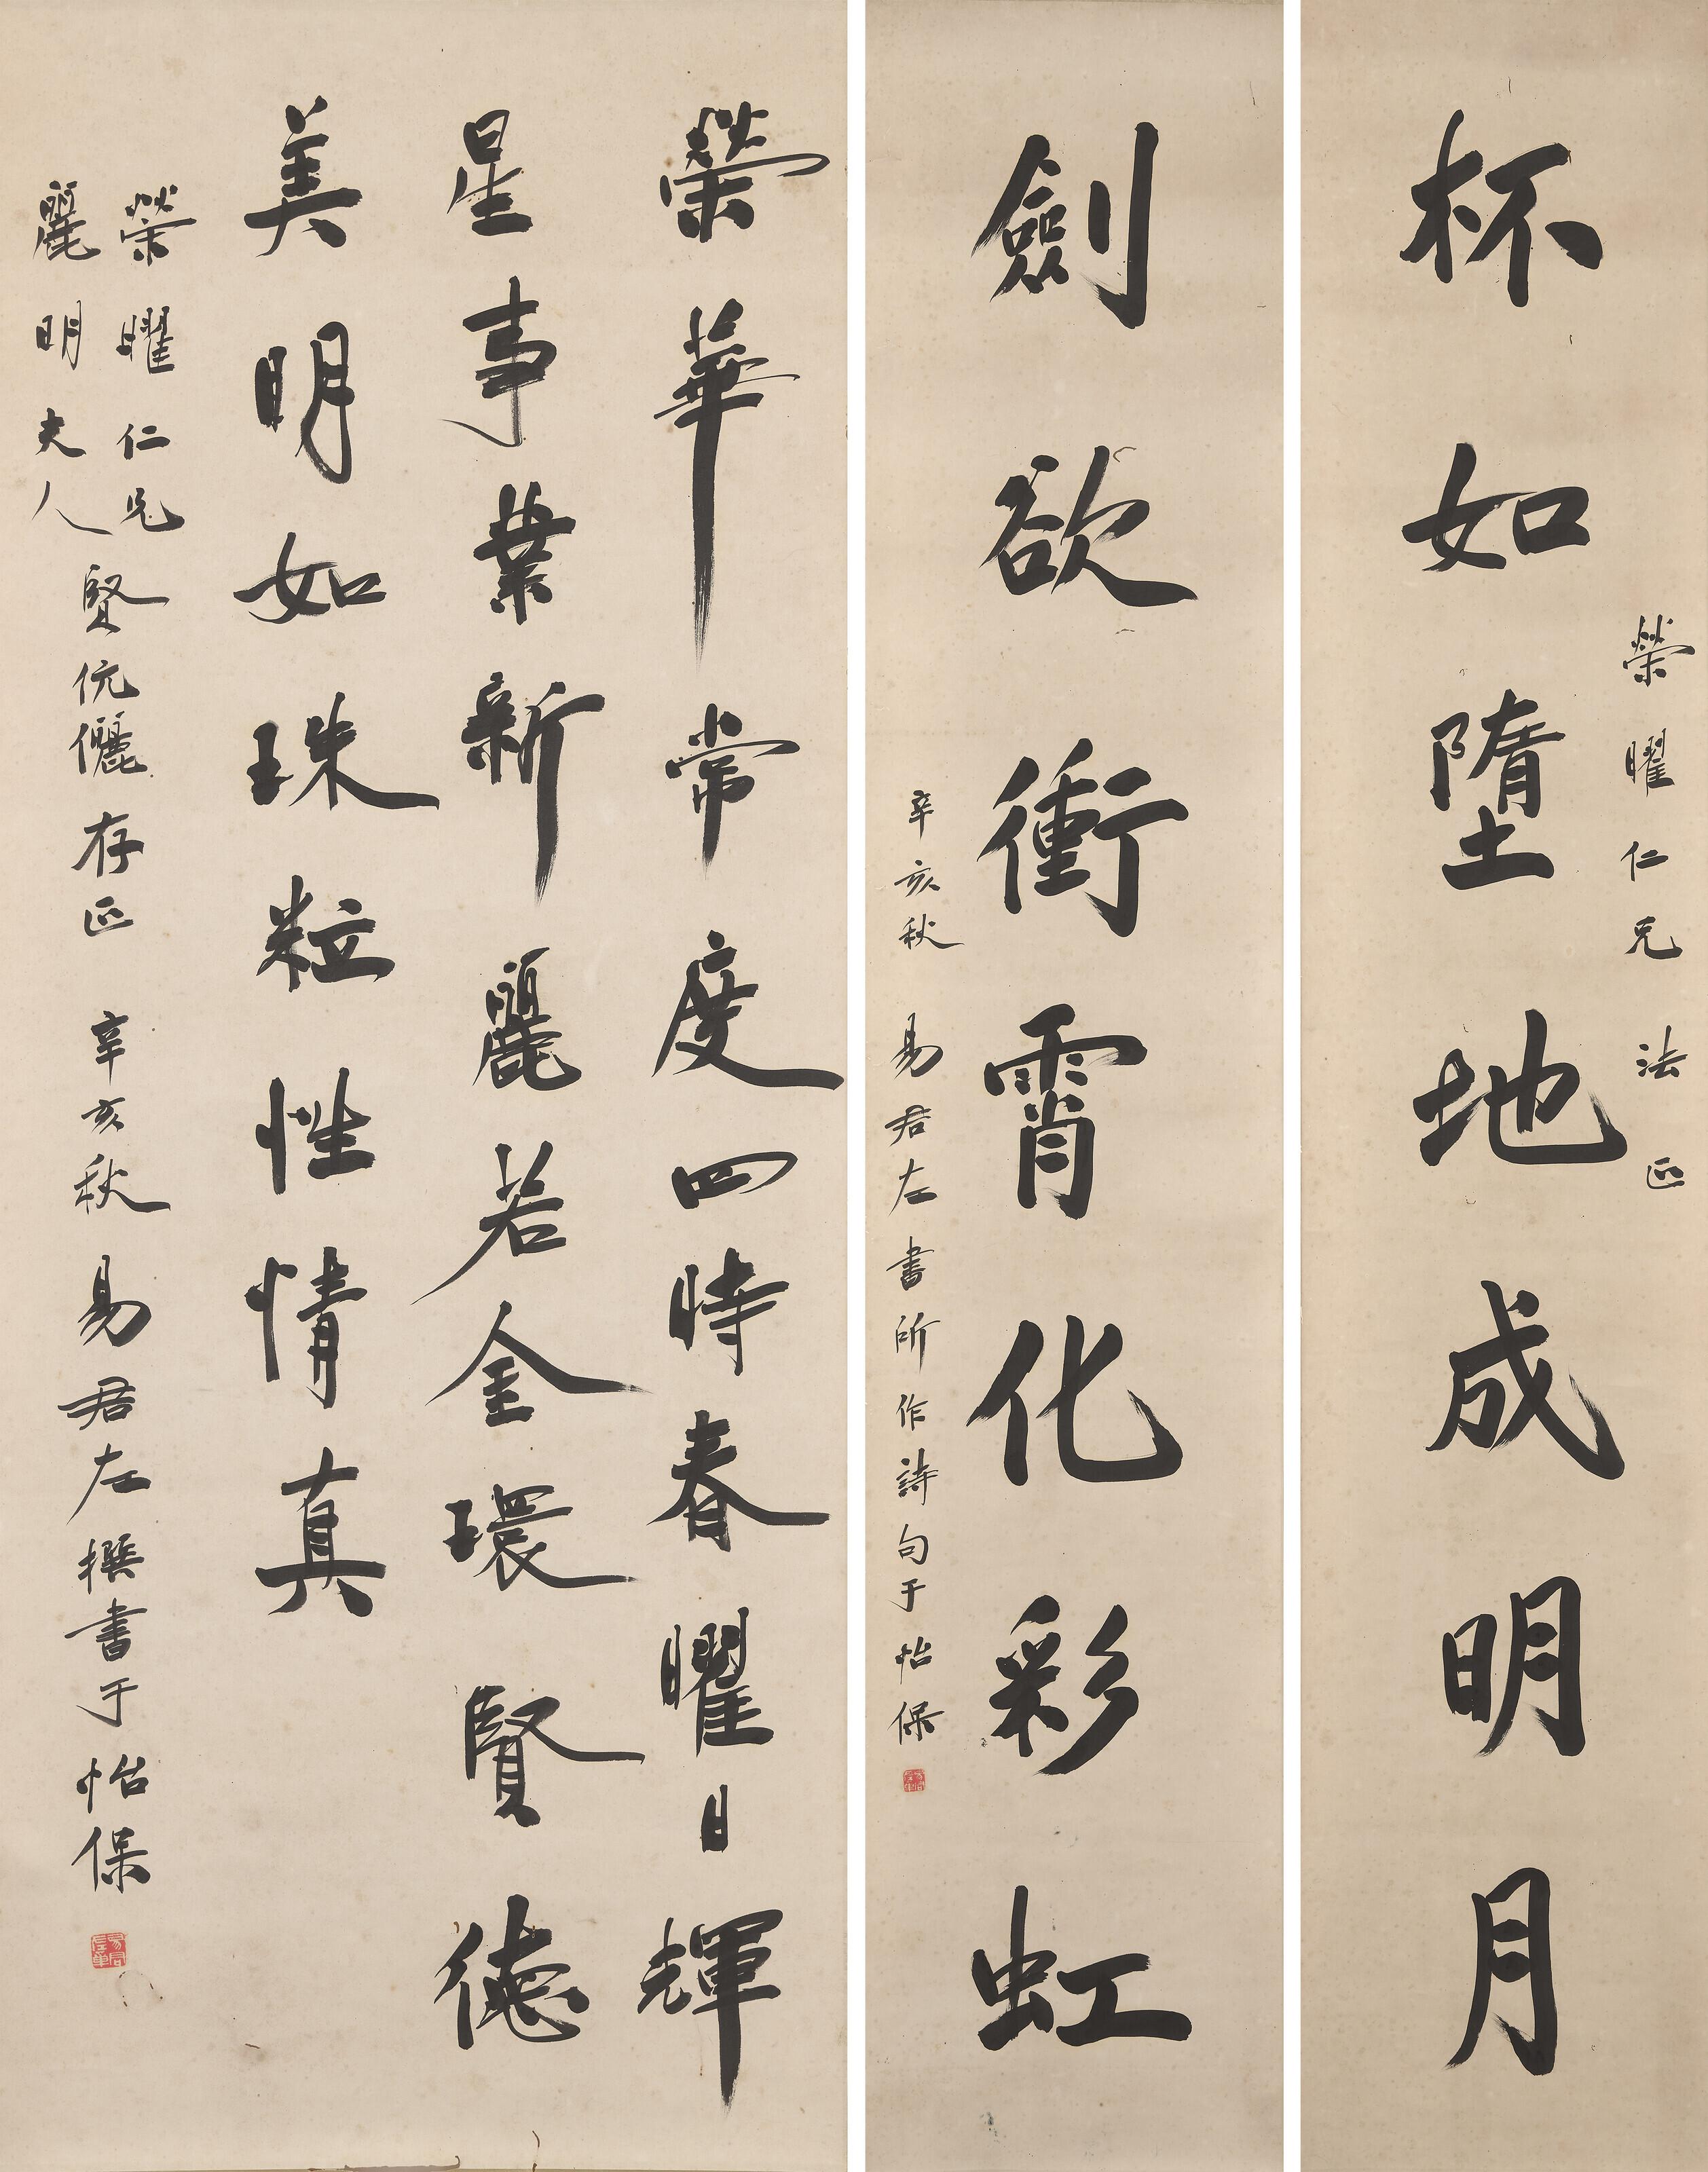 榮曜仁兄法正
杯如墮地成明月
劍欲衝霄化彩虹
辛亥秋 易君左書所作詩句于怡保
榮華常度四時春曜日輝
星事業新麗若金環賢德
美明如珠粒性情真
榮曜仁兄
麗明夫人
賢伉儷存正 辛亥秋 易君左撰書于怡保